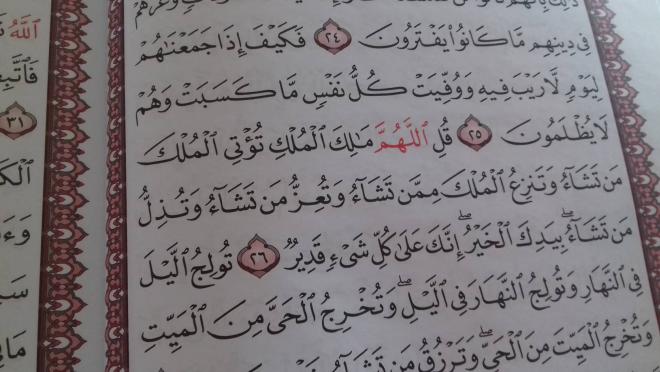 فِي دِينِهِم مَّا كَانُوا۟ يَفْتَرُونَ ٢٤ فَكَيْفَ إِذَا جَمَعْنَٰهُمْ
لِيَوْمٍ لَّا رَيْبَ فِيهِ وَوُفِّيَتْ كُلُّ نَفْسٍ مَّا كَسَبَتْ وَهُمْ
لَا يُظْلَمُونَ ٢٥ قُلِ ٱللَّهُمَّ مَٰلِكَ ٱلْمُلْكِ تُؤْتِي ٱلْمُلْكَ
مَن تَشَآءُ وَتَنزِعُ ٱلْمُلْكَ مِمَّن تَشَآءُ وَتُعِزُّ مَن تَشَآءُ وَتُذِلُّ
مَن تَشَآءُۖ بِيَدِكَ ٱلْخَيْرُۖ إِنَّكَ عَلَىٰ كُلِّ شَىْءٍ قَدِيرٌ ٢٦ تُولِجُ ٱلَّيْلَ
فِي ٱلنَّهَارِ وَتُولِجُ ٱلنَّهَارَ فِي ٱلَّيْلِۖ وَتُخْرِجُ ٱلْحَىَّ مِنَ ٱلْمَيِّتِ
وَتُخْرِجُ ٱلْمَيِّتَ مِنَ ٱلْحَىِّۖ وَتَرْزُقُ مَن تَشَآءُ
ٱللَّهُ
٣١